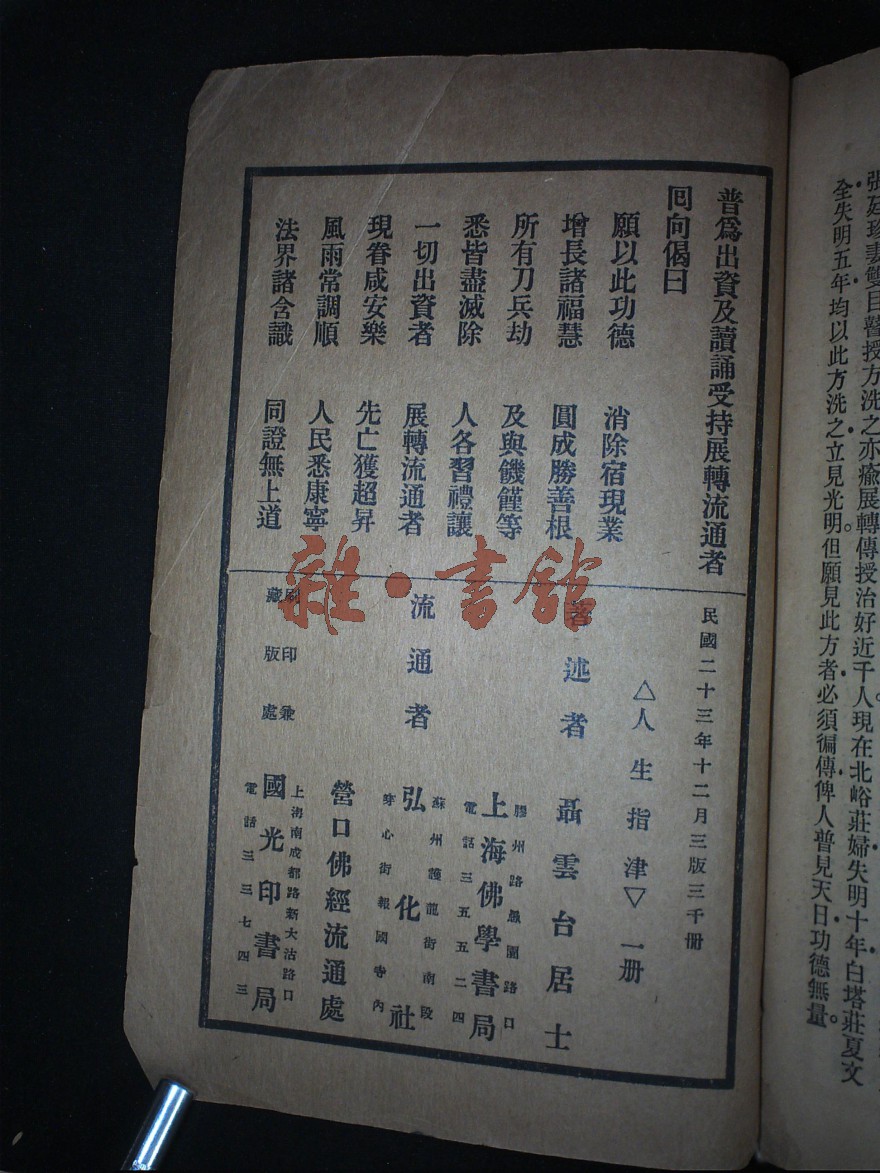 張廷珍妻雙目瞽授方洗之亦瘉展轉傳授治好近千人現在北峪莊婦失明十年白塔莊夏文
全失明五年均以此方洗之立見光明但願見此方者必須徧傳俾人普見天日功德無量。
普爲出資及讀誦受持展轉流通者
回向偈曰
願以此功德 消除宿現業
增長諸福慧 圓成勝善根
所有刀兵劫 及與饑饉等
悉皆盡滅除 人各習禮讓
一切出資者 展轉流通者
現眷咸安樂 先亡獲超昇
風雨常調順 人民悉康寧
法界諸含識 同證無上道
民國二十三年十二月三版三千冊
△人生指津▽一册
著述者 聶雲台居士
流通者
膠州路戲園路口
上海佛學書局
電話三五五二四
蘇州護龍街南段
弘化社
穿心街報國寺內
營口佛經流通處
刷印兼
藏版處
上海南成都路新大沽路口
國光印書局
電話三三七四三
雜·書館